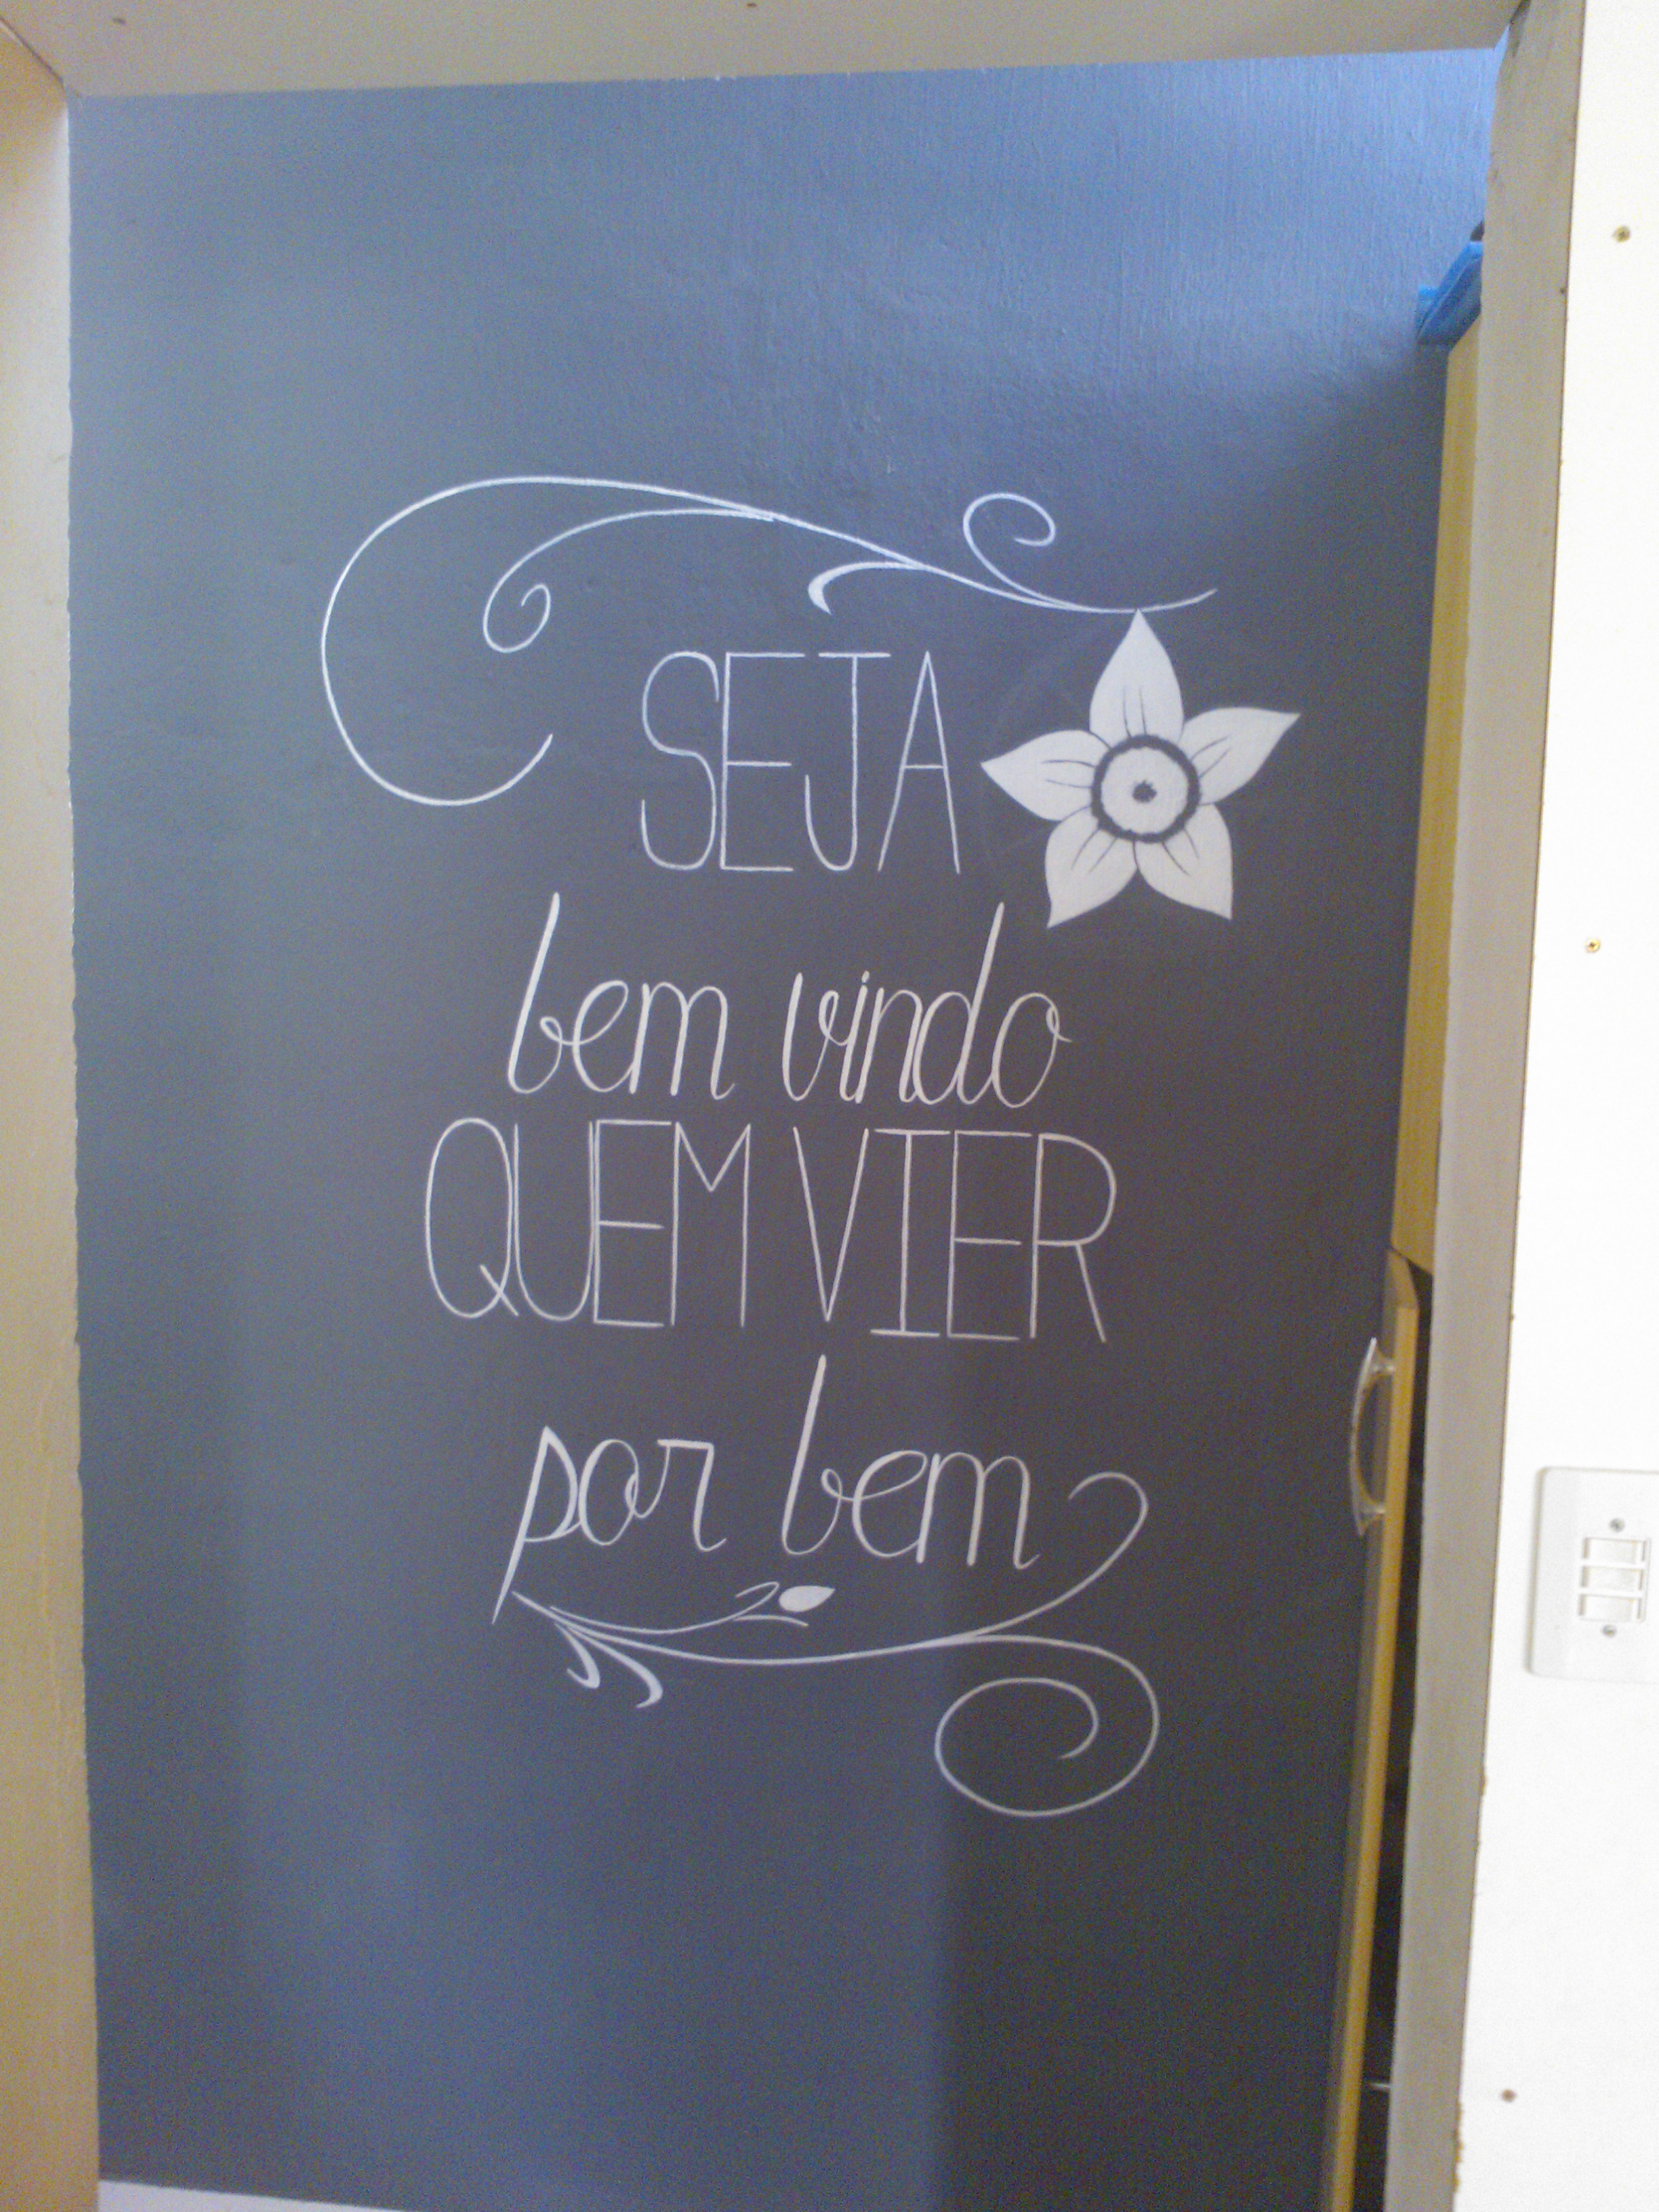 SEJA
bem vindo
QUEM VIER
por bem